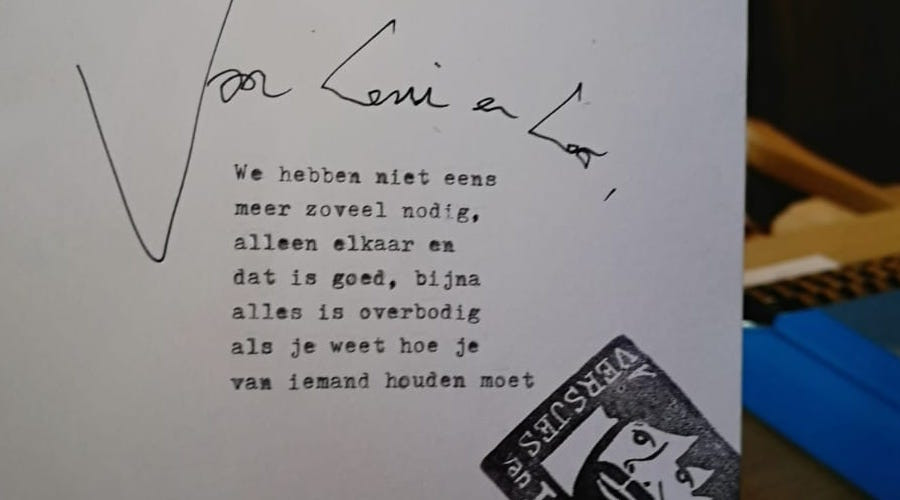 Voor Leni en Cor,
We hebben niet eens
meer zoveel nodig,
alleen elkaar en
dat is goed, bijna
alles is overbodig
als je weet hoe je
van iemand houden moet
VERSJES
van